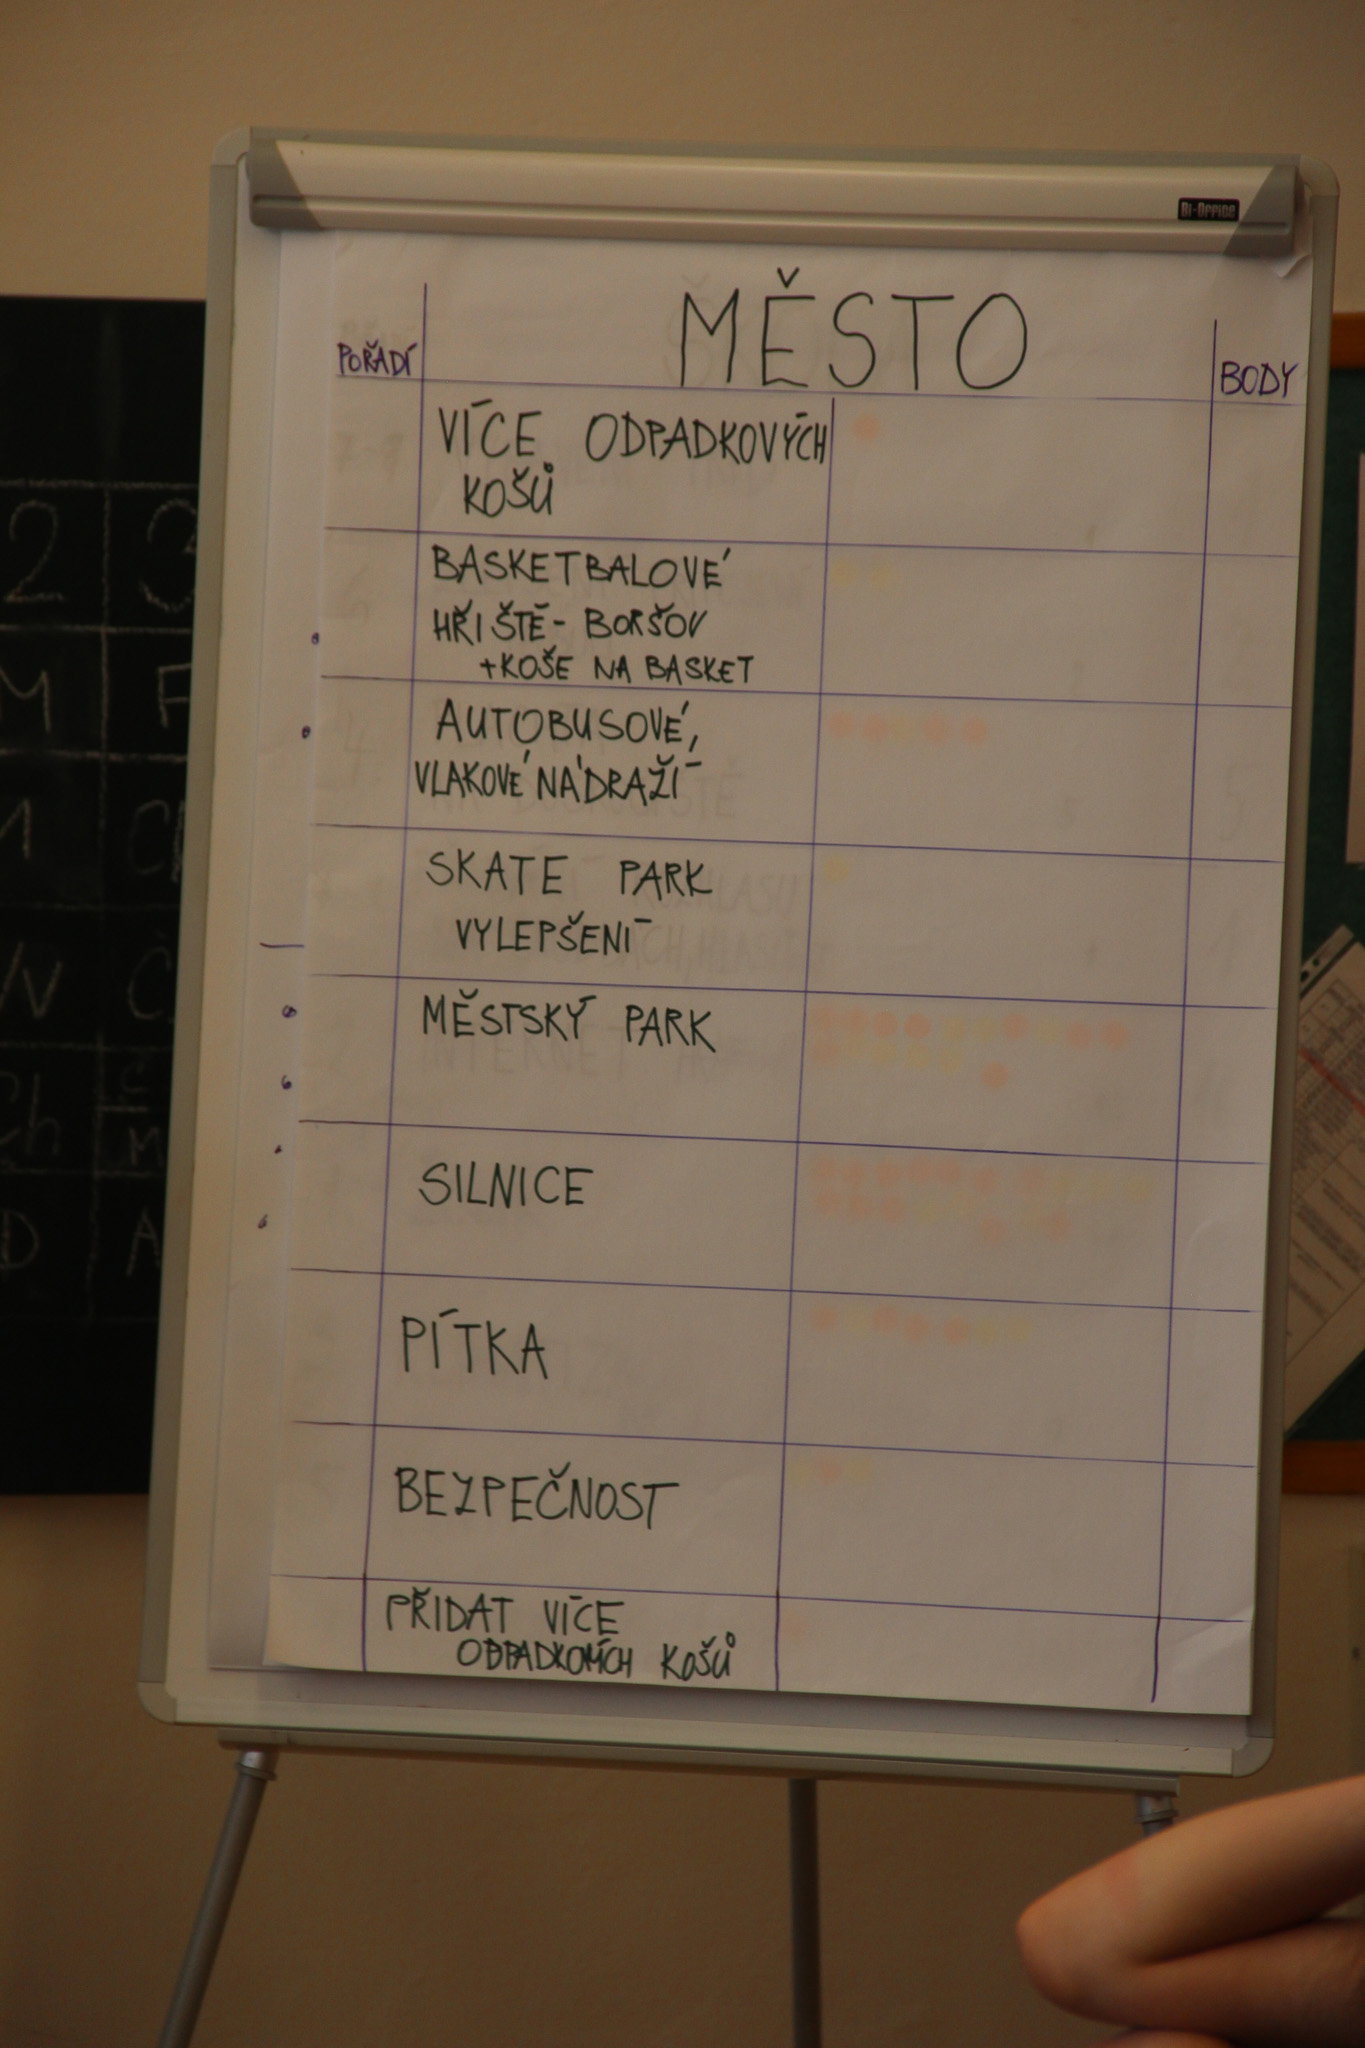 Bi-Office
MĚSTO
POŘADÍ
BODY
VÍCE ODPADKOVÝCH
KOŠŮ
BASKETBALOVÉ
HŘIŠTĚ - BORŠOV
+ KOŠE NA BASKET
AUTOBUSOVÉ,
VLAKOVÉ NÁDRAŽÍ
SKATE PARK
VYLEPŠENÍ
MĚSTSKÝ PARK
SILNICE
PÍTKA
BEZPEČNOST
PŘIDAT VÍCE
KOŠŮ
2 3
M F